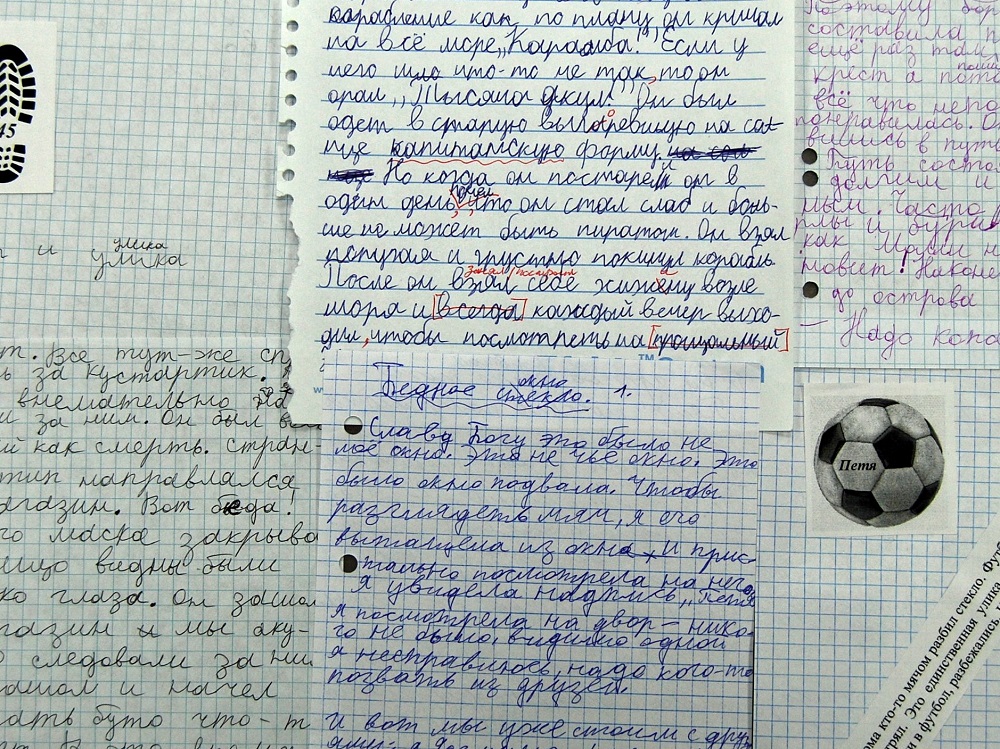 45
и улика
улика
т. Все тут-же
ь за кустартик.
внемательно
и за ним. Он был
й как смерть. стран-
тип направлялся
агазин. Вот беда!
го маска закрыва
лицо видны были
ко глаза. Он зашол
газин и мы аку-
следовали за ни
ашол и начел
ать буто что-т
карабление как по плану он кричал
на всё море „Карамба!" Если у
него шло что-то не так, то он
орал „Тысяча акул!" Он был
одет в старую выгоревшую на сол-
нце капитанскую форму.
Но когда он постарел и он в
один день понел, что он стал слаб и боль-
ше не может быть пиратом. Он взял
попугая и грустно покинул корабль
зжал/построил
После он взял себе хижину возле
моря и [всегда] каждый вечер выхо-
дил, чтобы посмотреть на [прощальный]
TM
w
окно
Бедное стекло. 1.
Славу Богу это было не
моё окно. Это не чьё окно. Это
было окно подвала. Чтобы
разглядеть мяч, я его
вытащела из окна и прис-
тально посмотрела на него
я увидела надпись „Петя
я посмотрела на двор – нико-
го не было, видимо одной
я несправлюсь, надо кого-то
позвать из друзей.
И вот мы уже стоим с друз
Поэтому
составила п
ещё раз
крест а пото
всё что
понравилась. О
вились в путь
Путь состо
долгим и
мым. Часто
лы и бури
как
мовит! Наконе
до острова
– Надо копа
Петя
ома кто-то мячом разбил стекло. Футб
Это единственная улика
в футбол, разбежались